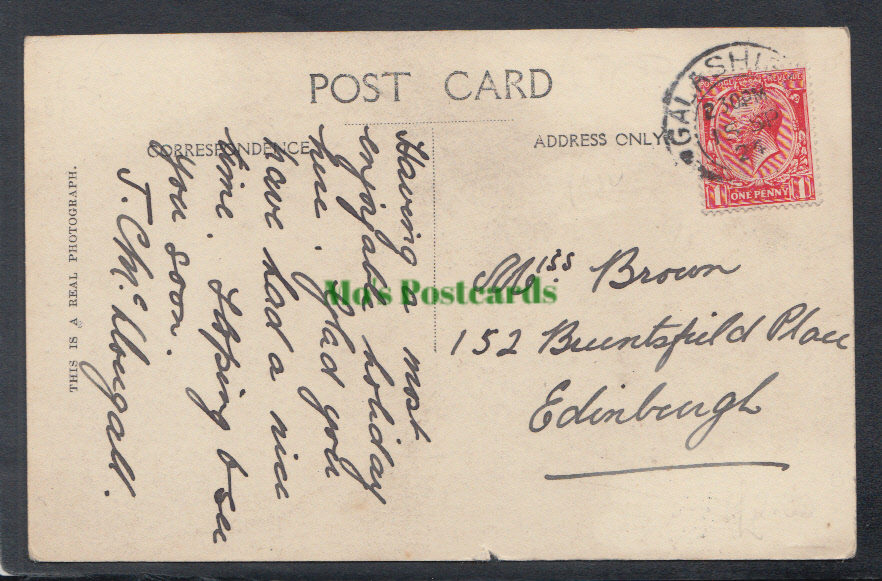 POST CARD
CORRESPONDENCE
ADDRESS ONLY
THIS IS A REAL PHOTOGRAPH.
GALASHI
2 30PM
ONE PENNY
1
1
Having a most
enjoyable holiday
here. Glad you
have had a nice
time. Hoping to see
you soon.
J. C. McDougall.
Miss Brown
152 Bruntsfield Place
Edinburgh
Mo's Postcards